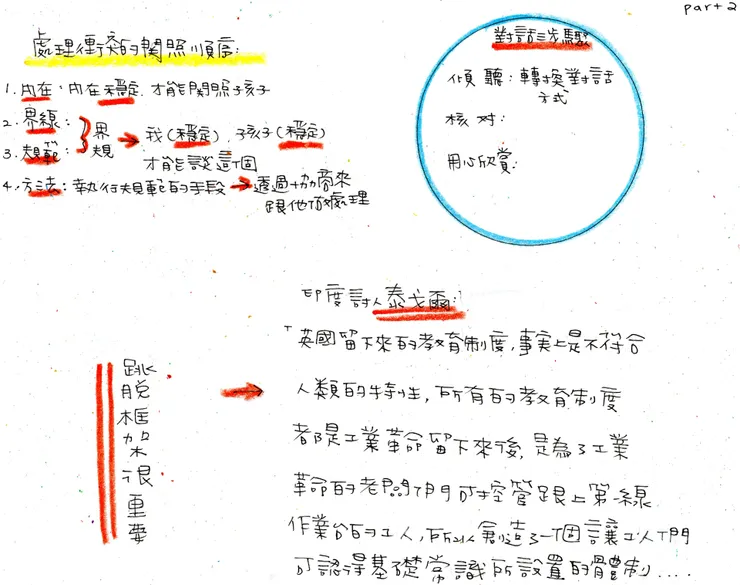 part 2
處理衝突的關照順序:
1. 內在: 內在穩定. 才能關照孩子
2. 界線:
3. 規範:
界
規
我(穩定). 孩子(穩定)
才能談這個
4. 方法: 執行規範的手段 → 透過協商來
跟他做處理
對話三步驟
傾聽: 轉換對話
方式
核對:
用心欣賞:
跳脫框架很重要
印度詩人泰戈爾:
「英國留下來的教育制度,事實上是不符合
人類的特性,所有的教育制度
都是工業革命留下來後,是為了工業
革命的老闆們可控管跟上第一線
作業台的工人,所以創造了一個讓工人們
可認得基礎常識所設置的體制....